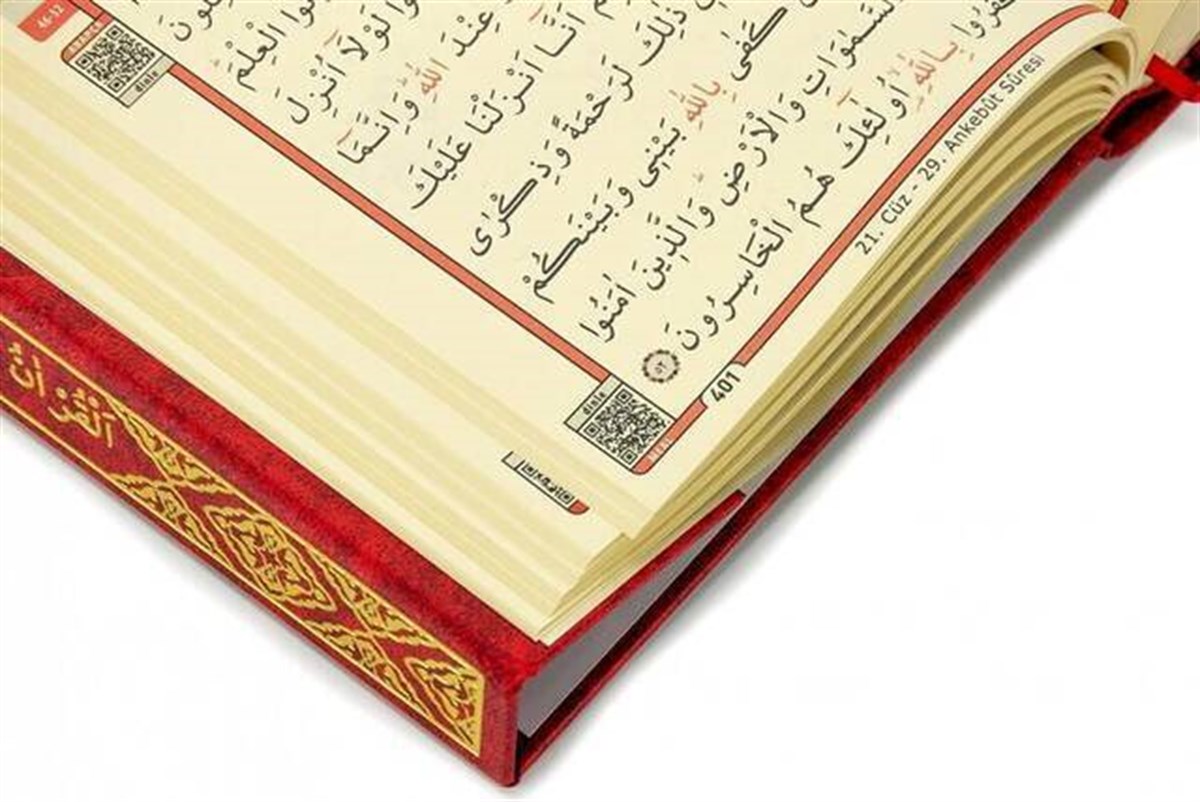 46-52
dinle
الْعِلْمَ
لَوْلَٓا اُنْزِلَ
عِنْدَ اللّٰهِ وَاِنَّمَٓا
اَنَّٓا اَنْزَلْنَا عَلَيْكَ
ذٰلِكَ لَرَحْمَةً وَذِكْرٰى
كَفٰى بِاللّٰهِ بَيْنٖى وَبَيْنَكُمْ
السَّمٰوَاتِ وَالْاَرْضِ وَالَّذٖينَ اٰمَنُوا
بِاللّٰهِ اُولٰٓئِكَ هُمُ الْخَاسِرُونَ ٥٢
21. Cüz - 29. Ankebût Sûresi
401
dinle
MEAL
اَلْقُرْاٰنُ